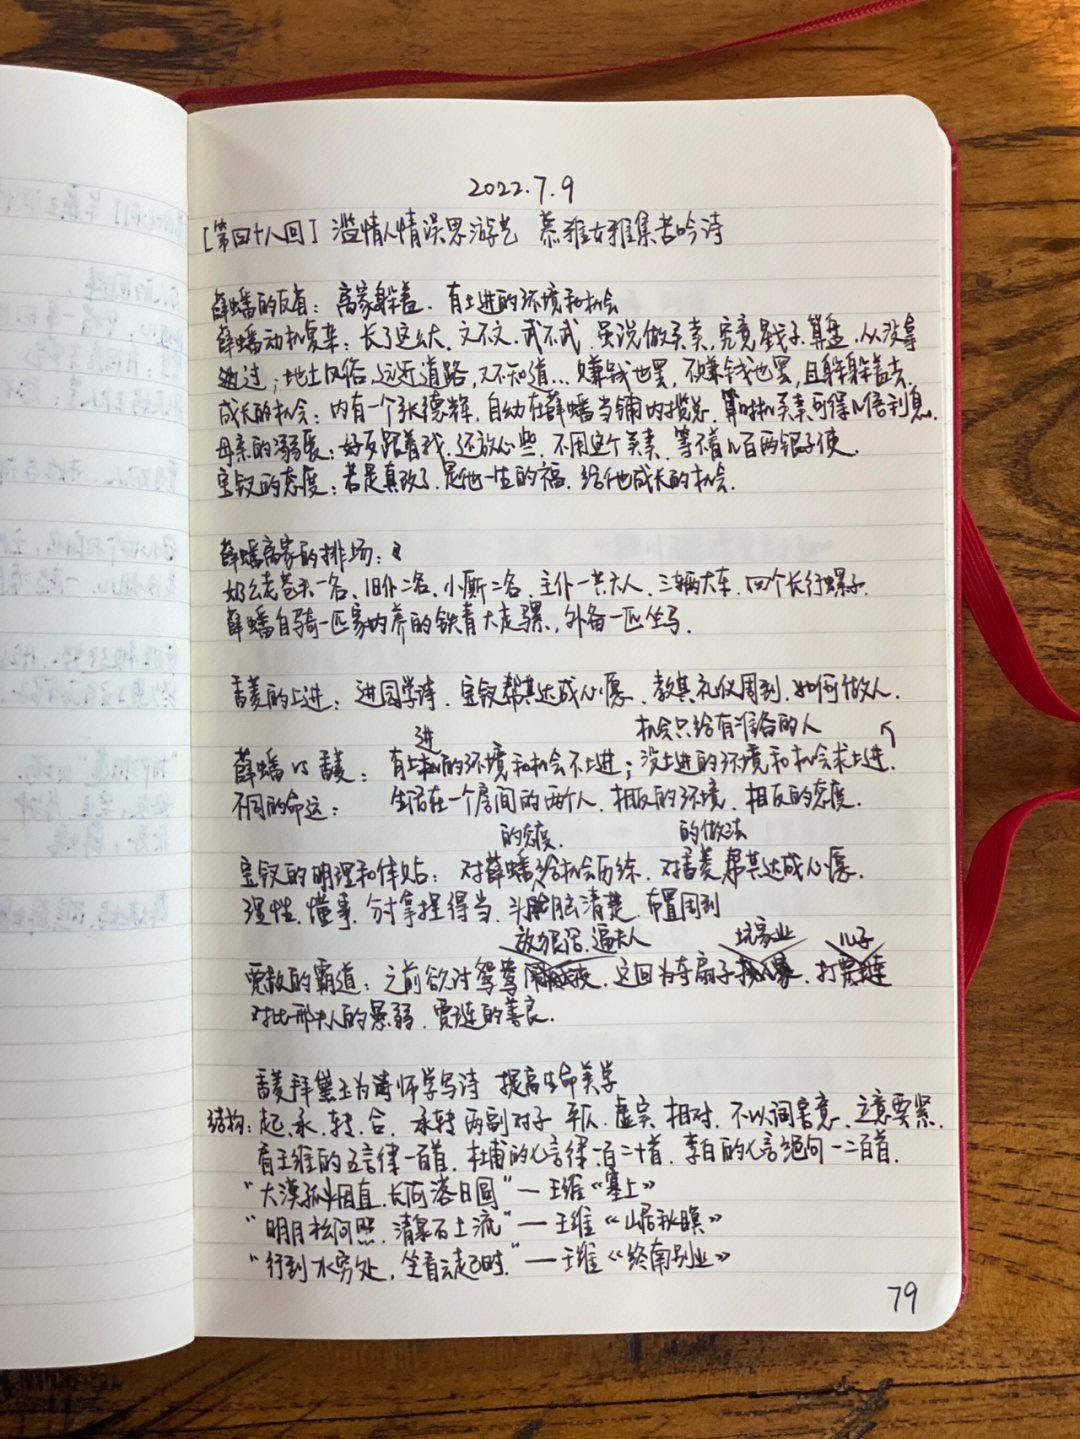 2022.7.9
[第四十八回] 滥情人情误思游艺 慕雅女雅集苦吟诗
薛蟠的反省：离家躲羞．有上进的环境和机会
薛蟠动机复杂：长了这么大，文不文．武不武．虽说做买卖，究竟戥子．算盘，从没拿
过；地土风俗，远近道路，又不知道…赚钱也罢，不赚钱也罢，且躲躲羞去．
成长的机会：内有一个张德辉，自幼在薛蟠当铺内揽总．算时机买卖可得几倍利息．
母亲的溺爱：好歹跟着我，还放心些，不用这个买卖，等不着几百两银子使．
宝钗的态度：若是真改了．是他一生的福．给他成长的机会．
薛蟠离家的排场：
奶公老苍头一名、旧仆二名、小厮二名．主仆一共六人．三辆大车．四个长行骡子．
薛蟠自骑一匹家内养的铁青大走骡，外备一匹坐马．
香菱的上进：进园学诗．宝钗帮其达成心愿．教其礼仪周到．如何做人．
进 机会只给有准备的人
薛蟠 VS 香菱：有上的环境和机会不上进；没上进的环境和机会求上进．
不同的命运：生活在一个房间的两个人．相反的环境．相反的态度．
的态度． 的做法
宝钗的明理和体贴：对薛蟠给机会历练．对香菱帮其达成心愿．
理性．懂事．分寸拿捏得当．头脑清楚．布置周到
放狠话．逼夫人 坑家业 儿子
贾赦的霸道：之前欲讨鸳鸯．这回为夺扇子．打
对比邢夫人的愚弱．贾琏的善良．
香菱拜黛玉为诗师学写诗 提高生命美学
结构：起、承、转、合．承转两副对子 平仄．虚实 相对．不以词害意．立意要紧．
看王维的五言律一百首．杜甫的七言律一百二十首．李白的七言绝句一二百首．
“大漠孤烟直．长河落日圆”—王维《塞上》
“明月松间照．清泉石上流”—王维《山居秋暝》
“行到水穷处，坐看云起时．”—王维《终南别业》
79